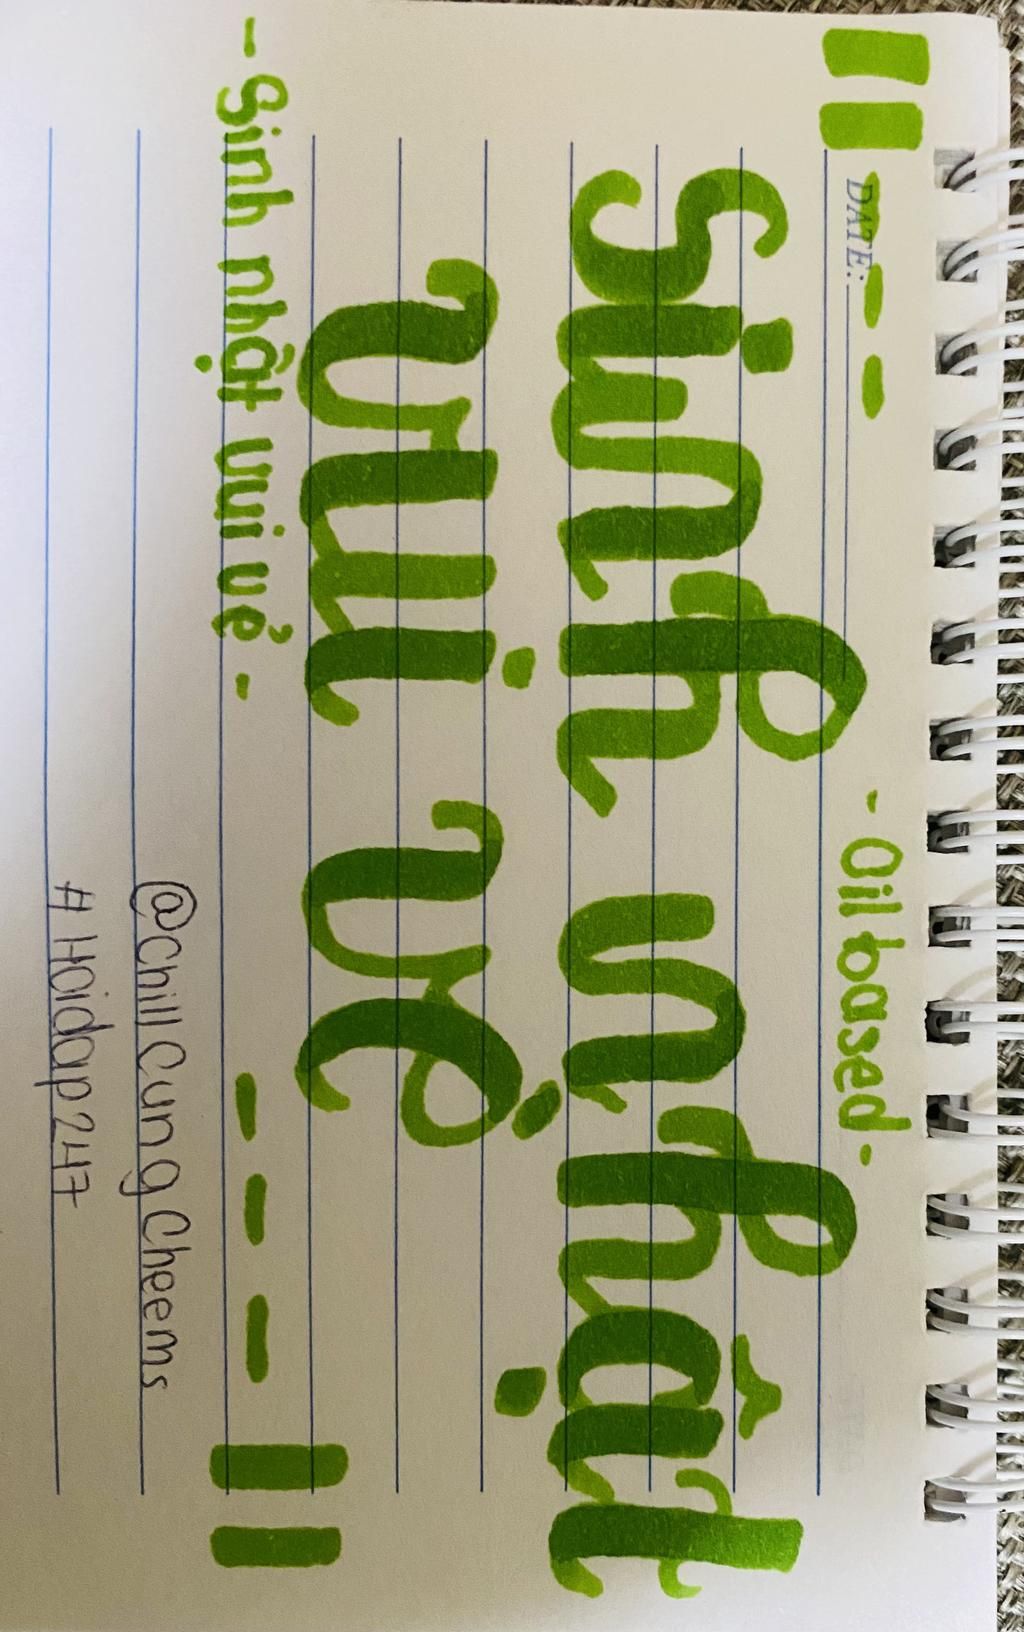 - Oil based -
DATE:
Sinh nhật
vui vẻ
- Sinh nhật vui vẻ -
@Chill Cung Cheems
# Hoidap247